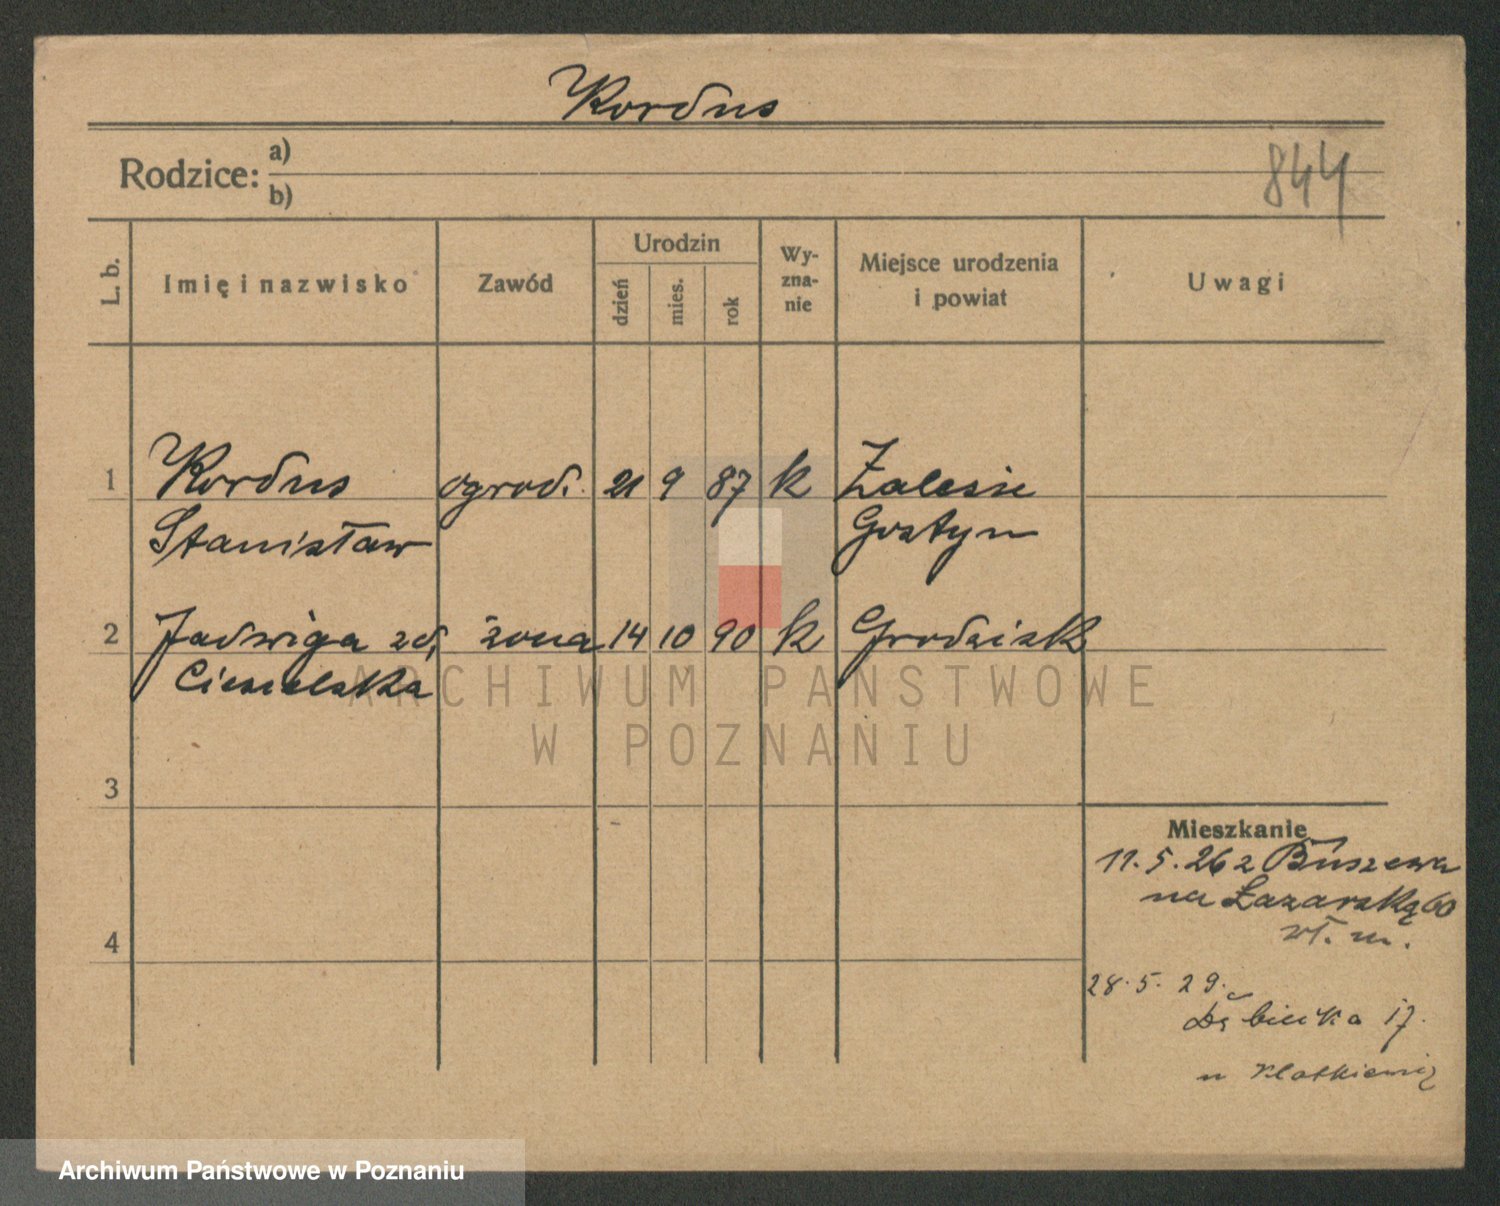 Kordus
844
Rodzice: a)
b)
L. b.
Imię i nazwisko
Zawód
Urodzin
dzień
mies.
rok
Wy-
zna-
nie
Miejsce urodzenia
i powiat
Uwagi
1 Kordus ogrod. 21 9 87 k Zalesie
Stanisław Gostyn
2 Jadwiga zd. żona 14 10 90 k Grodzisk
Ciesielska
3
4
Mieszkanie
11.5.26 z Buszewa
na Łazarską 60
wł. m.
28.5.29.
17.
u
ARCHIWUM PAŃSTWOWE
W POZNANIU
Archiwum Państwowe w Poznaniu